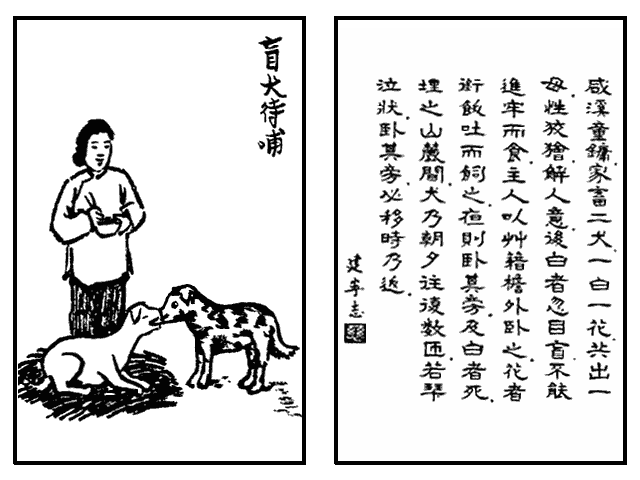 盲犬待哺
咸溪童鏞家畜二犬。一白一花。共出一
母。性狡獪。解人意。後白者忽目盲。不能
進牢而食。主人以艸籍檐外臥之。花者
銜飯吐而飼之。夜則臥其旁。及白者死。
埋之山麓間。犬乃朝夕往復數匝。若拜
泣狀。臥其旁。必移時乃返。
建寧志